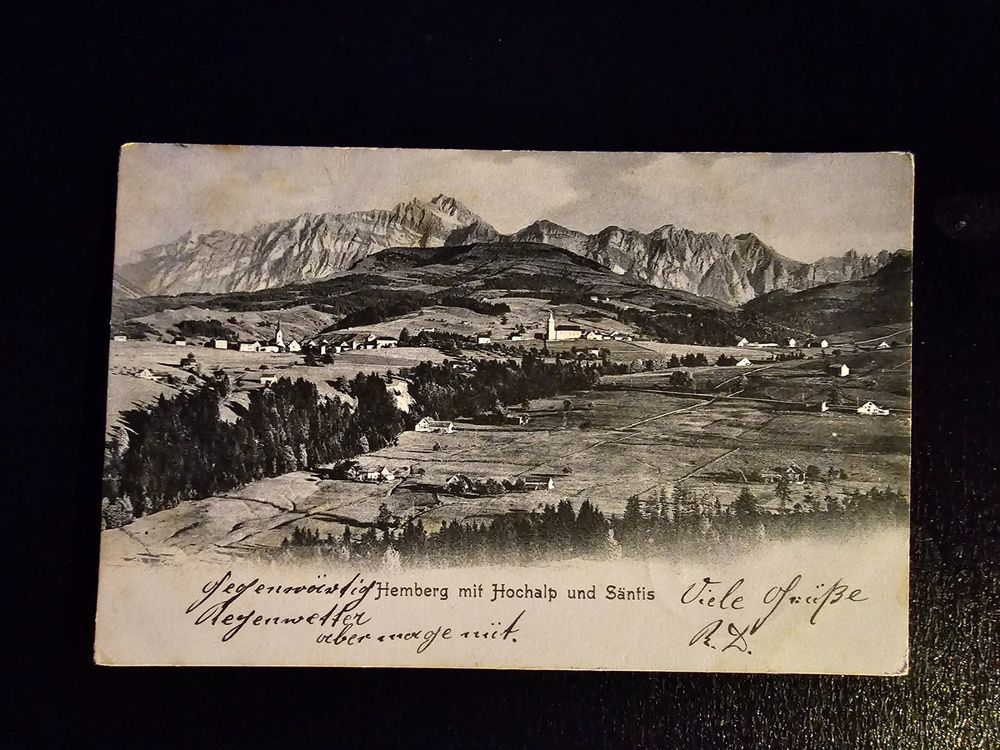 Gegenwärtig
Hemberg mit Hochalp und Säntis
Viele Grüße
Regenwetter
aber mage nüt.
R. D.